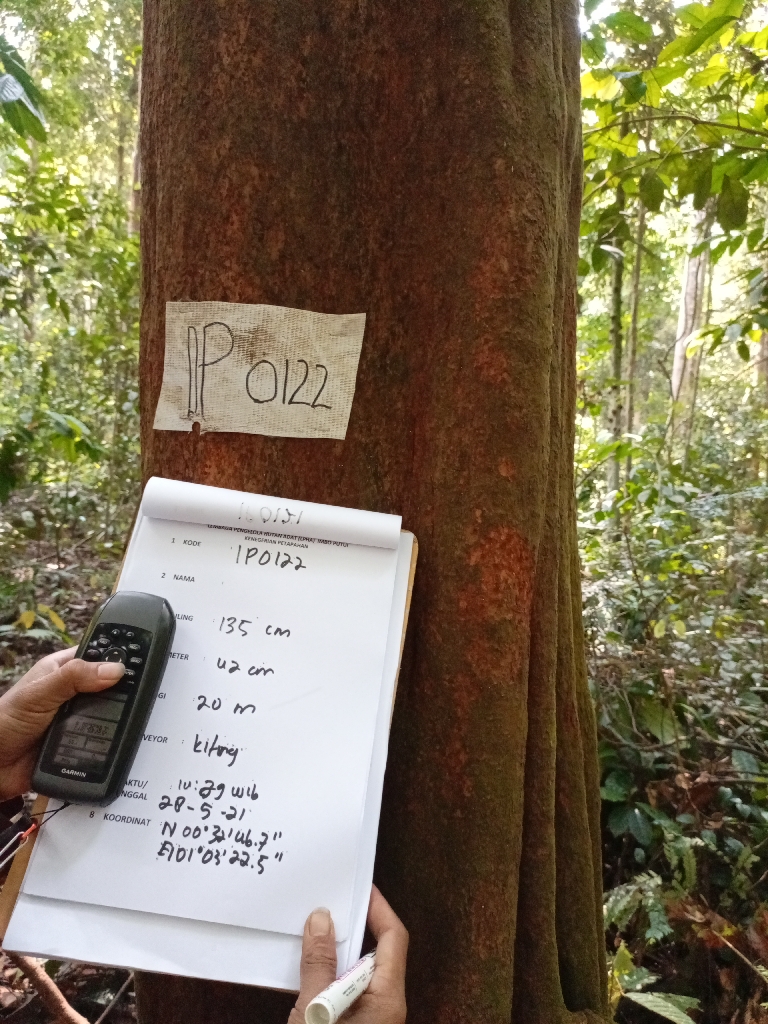 IP 0122
LEMBAGA PENGELOLA HUTAN ADAT (LPHA) IMBO PUTUI
KENEGERIAN PETAPAHAN
1 KODE : IP0122
2 NAMA
LILING : 135 cm
METER : 42 cm
GI : 20 m
VEYOR :
AKTU/ : 10:29 wib
NGGAL 28-5-21
8 KOORDINAT N 00°32'46.7"
E101°03'22.5"
GARMIN